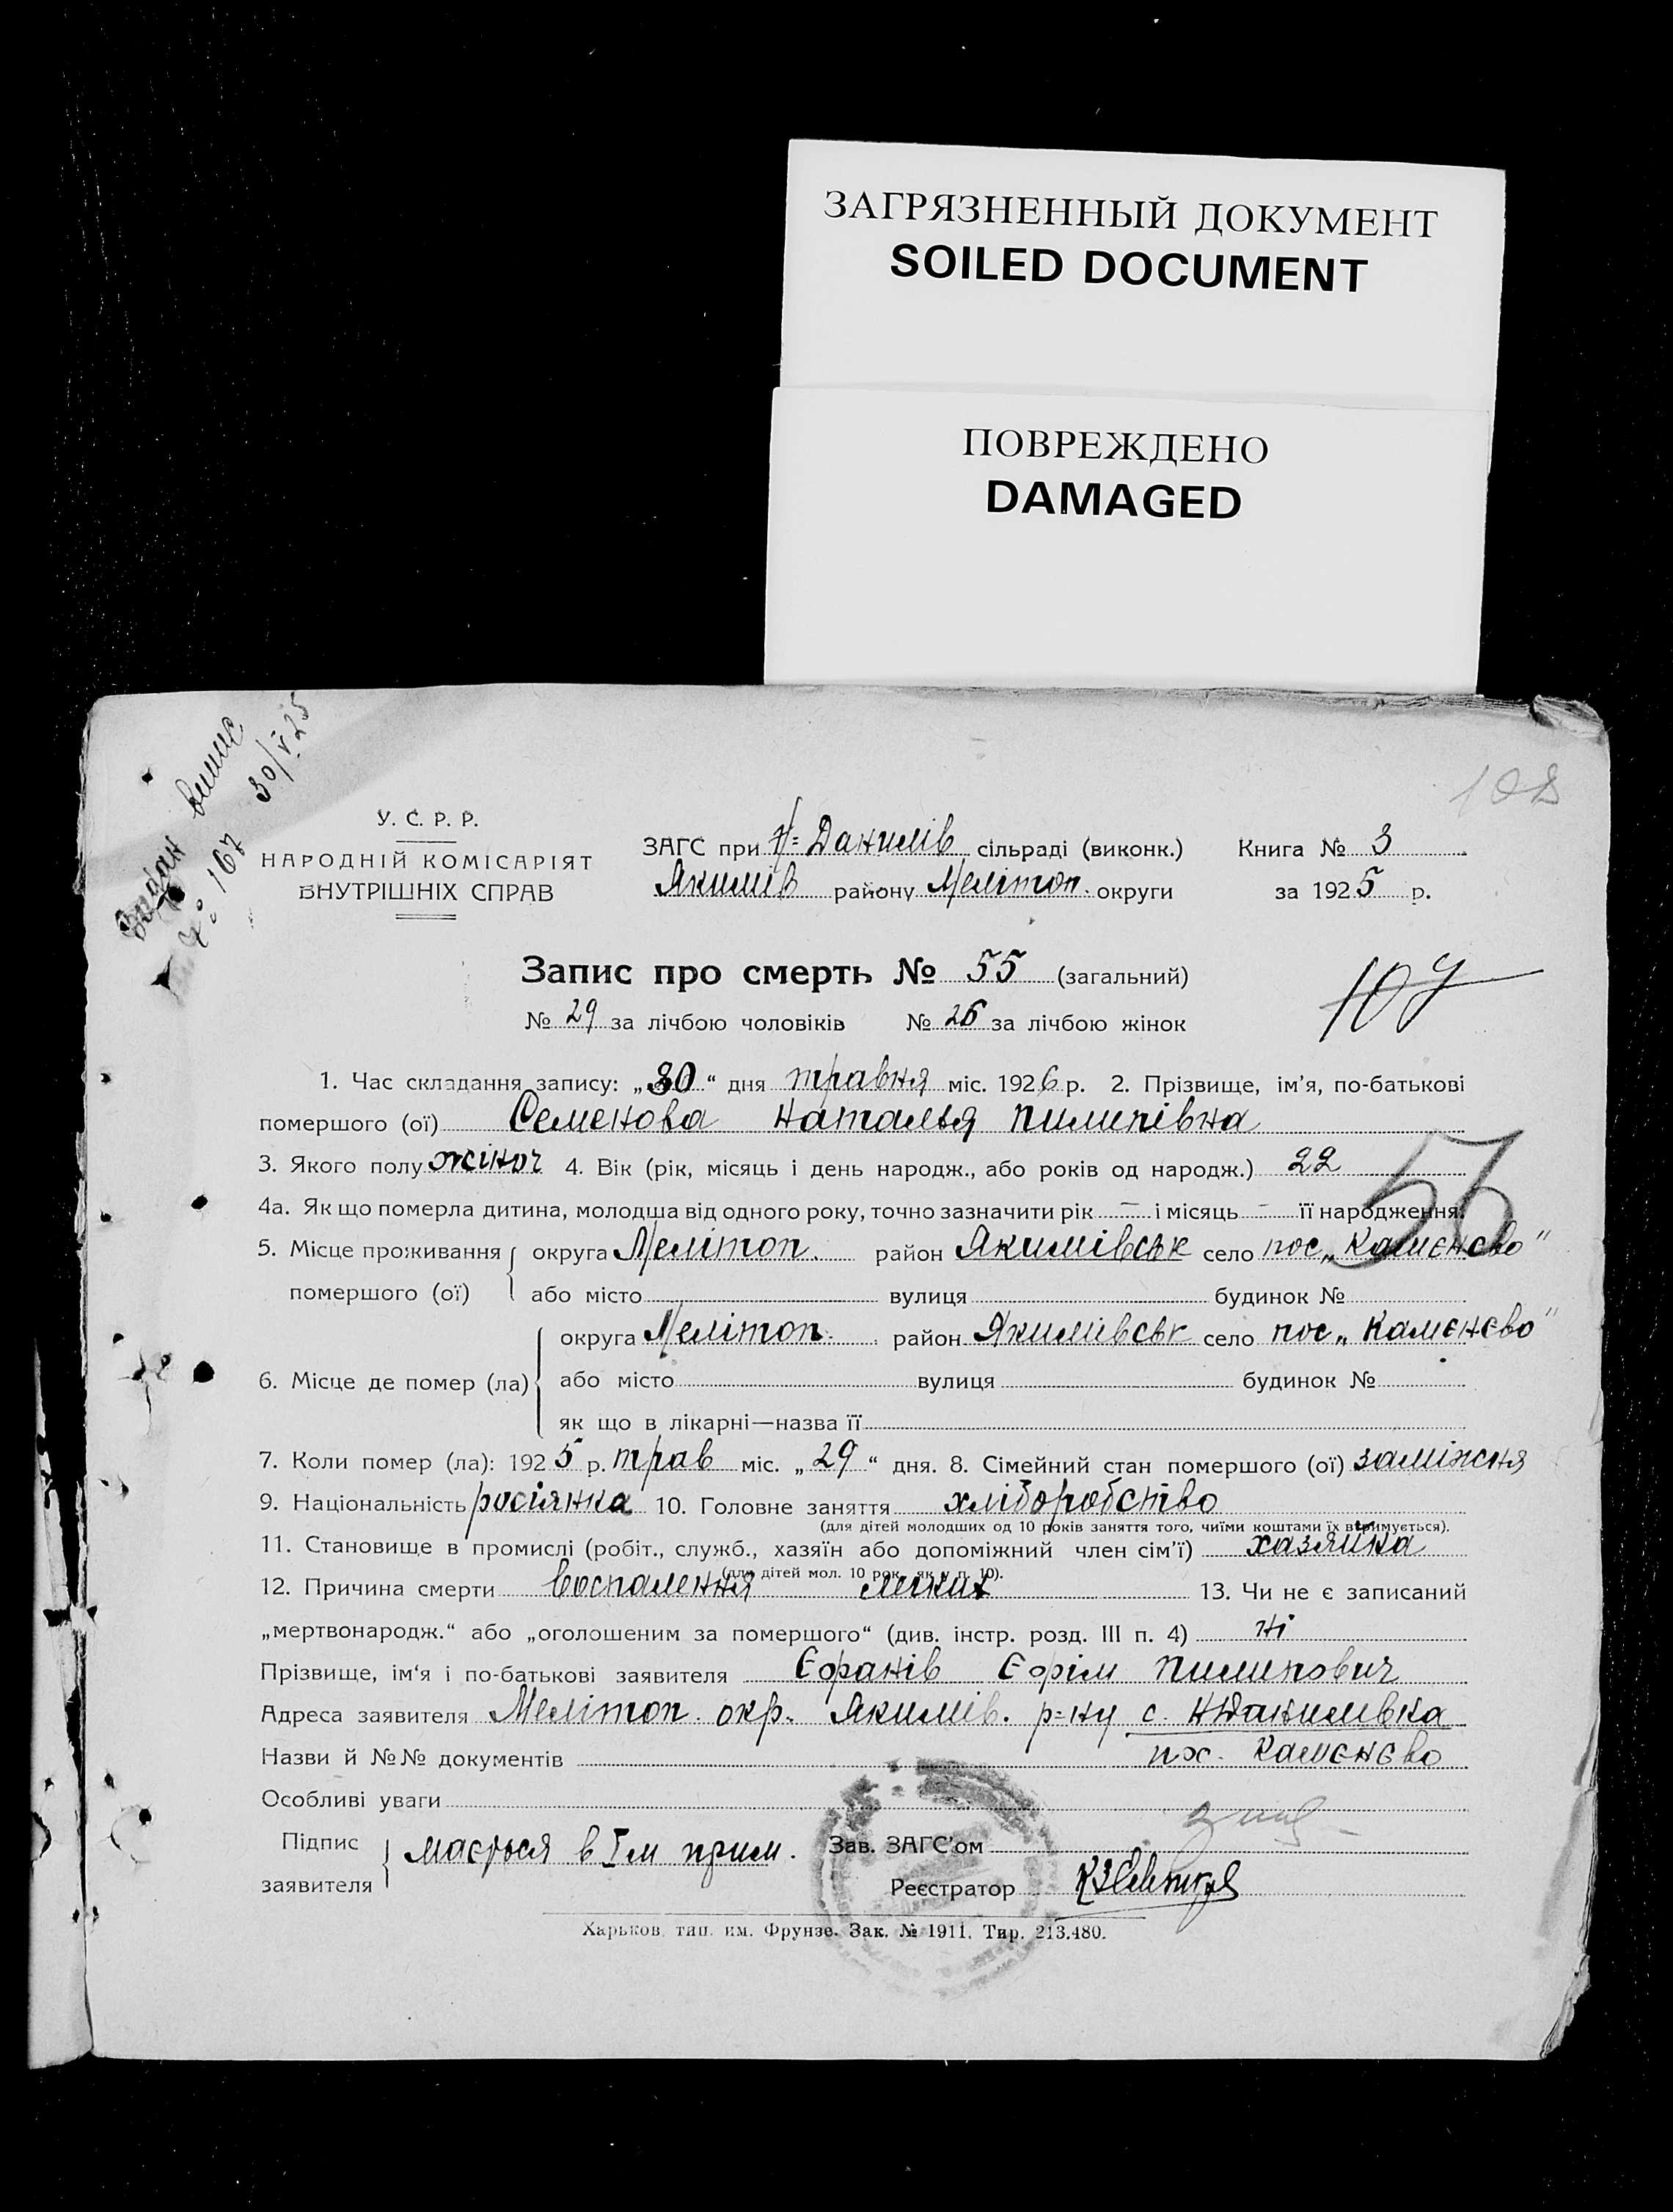 ЗАГРЯЗНЕННЫЙ ДОКУМЕНТ
SOILED DOCUMENT
ПОВРЕЖДЕНО
DAMAGED
Видан випис
№ 167 30/V 25
108
У. С. Р. Р.
НАРОДНІЙ КОМІСАРІЯТ
ВНУТРІШНІХ СПРАВ
ЗАГС при Н=Данилів сільраді (виконк.) Книга № 3
Якимів району Мелітоп. округи за 1925 р.
Запис про смерть № 55 (загальний)
107
№ 29 за лічбою чоловіків № 26 за лічбою жінок
1. Час складання запису: „30“ дня травня міс. 1926 р. 2. Прізвище, ім’я, по-батькові
помершого (ої) Семенова Наталья Пилипівна
3. Якого полу жіноч 4. Вік (рік, місяць і день народж., або років од народж.) 22
56
4а. Як що померла дитина, молодша від одного року, точно зазначити рік — і місяць — її народження.
5. Місце проживання округа Мелітоп. район Якимівськ село пос „Камєнєво“
помершого (ої) або місто вулиця будинок №
округа Мелітоп. район Якимівськ село пос „Камєнєво“
6. Місце де помер (ла) або місто вулиця будинок №
як що в лікарні—назва її
7. Коли помер (ла): 1925 р. трав міс. „29“ дня. 8. Сімейний стан помершого (ої) заміжня
9. Національність росіянка 10. Головне заняття хліборобство
(для дітей молодших од 10 років заняття того, чиїми коштами їх втримується).
11. Становище в промислі (робіт., служб., хазяїн або допоміжний член сім’ї) хазяйка
(для дітей мол. 10 рок. як у п. 10).
12. Причина смерти воспалення легких 13. Чи не є записаний
„мертвонародж.“ або „оголошеним за помершого“ (див. інстр. розд. III п. 4) ні
Прізвище, ім‘я і по-батькові заявителя Єфанів Єфім Пилипович
Адреса заявителя Мелітоп. окр. Якимів. р=ну с. НДанилівка
Назви й №№ документів пос. Камєнєво
Особливі уваги
Підпис заявителя мається в Iм прим. Зав. ЗАГС’ом
Реєстратор
Харьков, тип. им. Фрунзе. Зак. № 1911. Тир. 213.480.